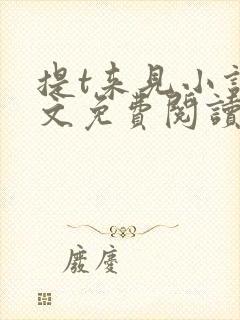 提t来見小
文免費閱讀
廢慶